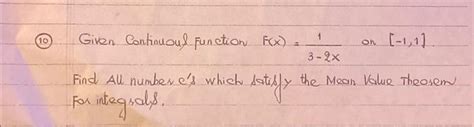 ⑩ Given Continuous Function F(x) = 1 / 3-2x on [-1,1]
Find All number c's which satisfy the Mean Value Theorem
For integrals.